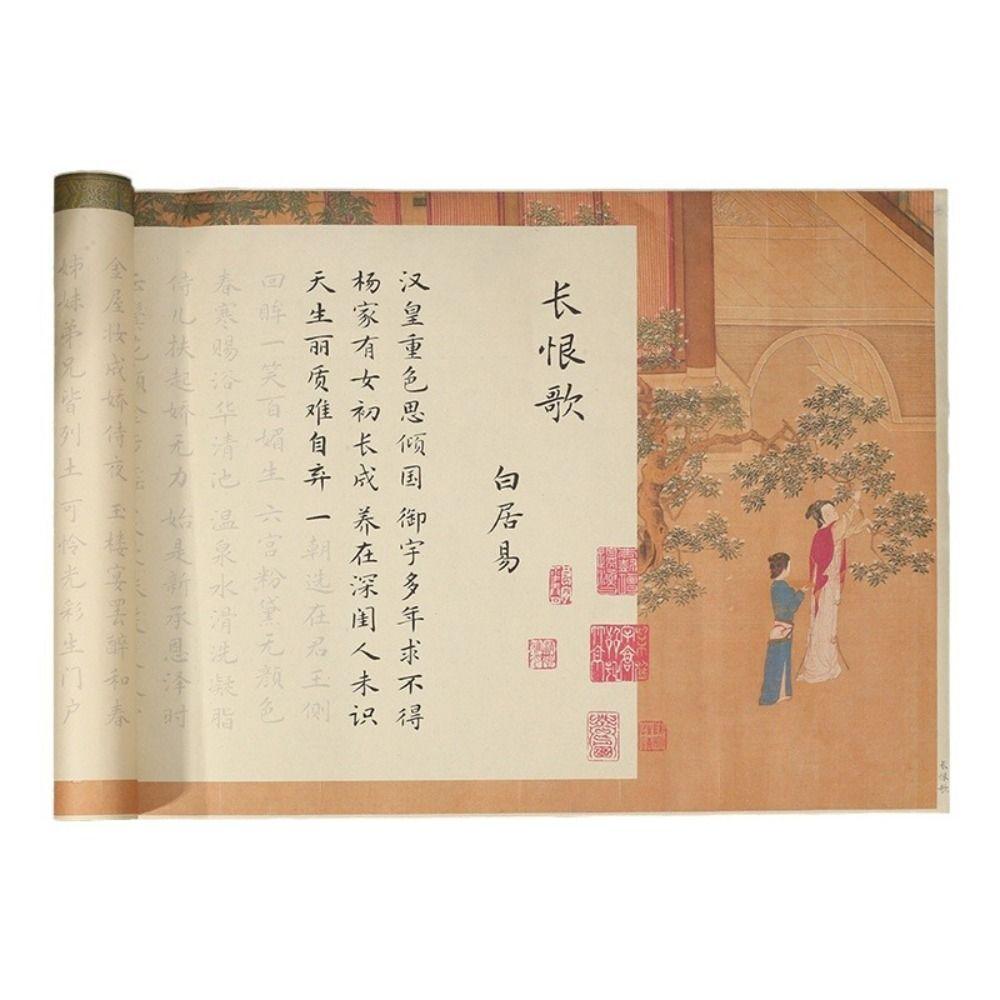 长恨歌
白居易
汉皇重色思倾国 御宇多年求不得
杨家有女初长成 养在深闺人未识
天生丽质难自弃 一朝选在君王侧
回眸一笑百媚生 六宫粉黛无颜色
春寒赐浴华清池 温泉水滑洗凝脂
侍儿扶起娇无力 始是新承恩泽时
金屋妆成娇侍夜 玉楼宴罢醉和春
姊妹弟兄皆列土 可怜光彩生门户
长恨歌